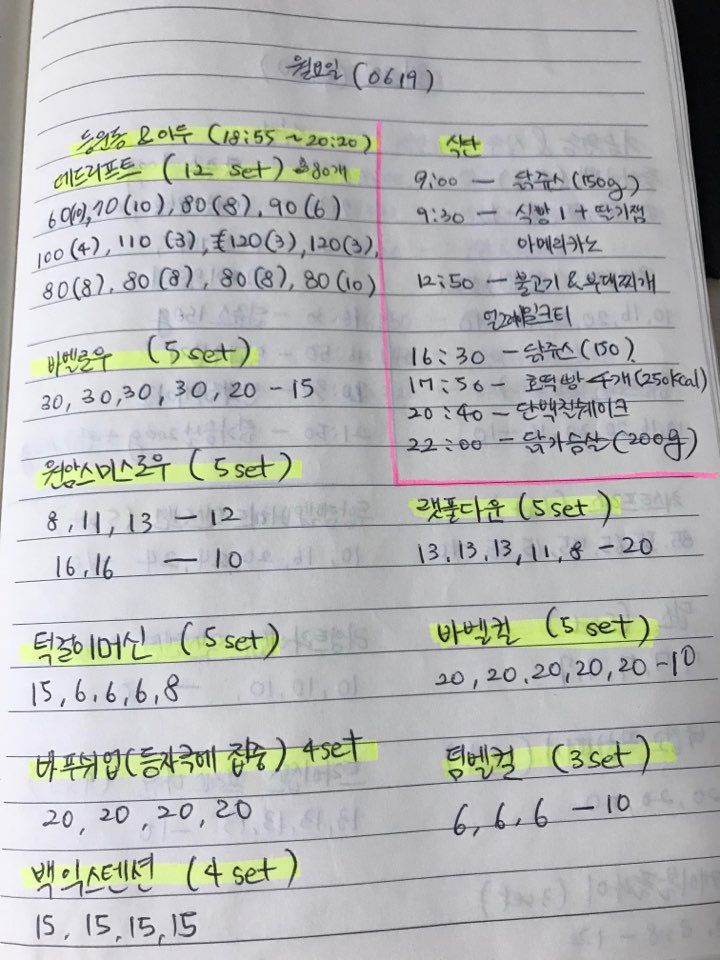 월요일 (0619)
등운동 & 이두 (18:55 ~ 20:20)
데드리프트 (12 set) 80개
60(10), 70(10), 80(8), 90(6)
100(4), 110(3), 120(3), 120(3),
80(8), 80(8), 80(8), 80(10)
식단
9:00 — 닭쥬스(150g)
9:30 — 식빵 1 + 딸기잼
아메리카노
12:50 — 불고기 & 부대찌개
얼그레이밀크티
16:30 — 닭쥬스(150).
17:50 — 호떡빵 4개(250kcal)
20:40 — 단백질쉐이크
22:00 — 닭가슴살(200g)
바벨로우 (5set)
30, 30, 30, 30, 20 - 15
원암스미스로우 (5set)
8, 11, 13 — 12
16, 16 — 10
랫풀다운 (5set)
13, 13, 13, 11, 8 - 20
턱걸이머신 (5set)
15, 6, 6, 6, 8
바벨컬 (5set)
20, 20, 20, 20, 20 - 10
바푸쉬업(등자극에 집중) 4set
20, 20, 20, 20
덤벨컬 (3set)
6, 6, 6 - 10
백익스텐션 (4set)
15, 15, 15, 15